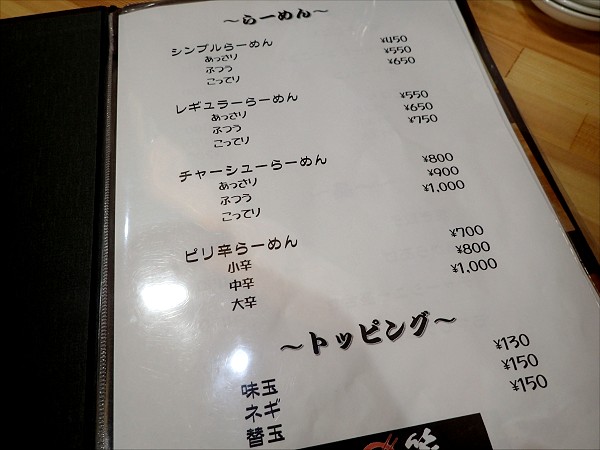 ～らーめん～
シンプルらーめん
あっさり ¥450
ふつう ¥550
こってり ¥650
レギュラーらーめん
あっさり ¥550
ふつう ¥650
こってり ¥750
チャーシューらーめん
あっさり ¥800
ふつう ¥900
こってり ¥1,000
ピリ辛らーめん
小辛 ¥700
中辛 ¥800
大辛 ¥1,000
～トッピング～
味玉 ¥130
ネギ ¥150
替玉 ¥150